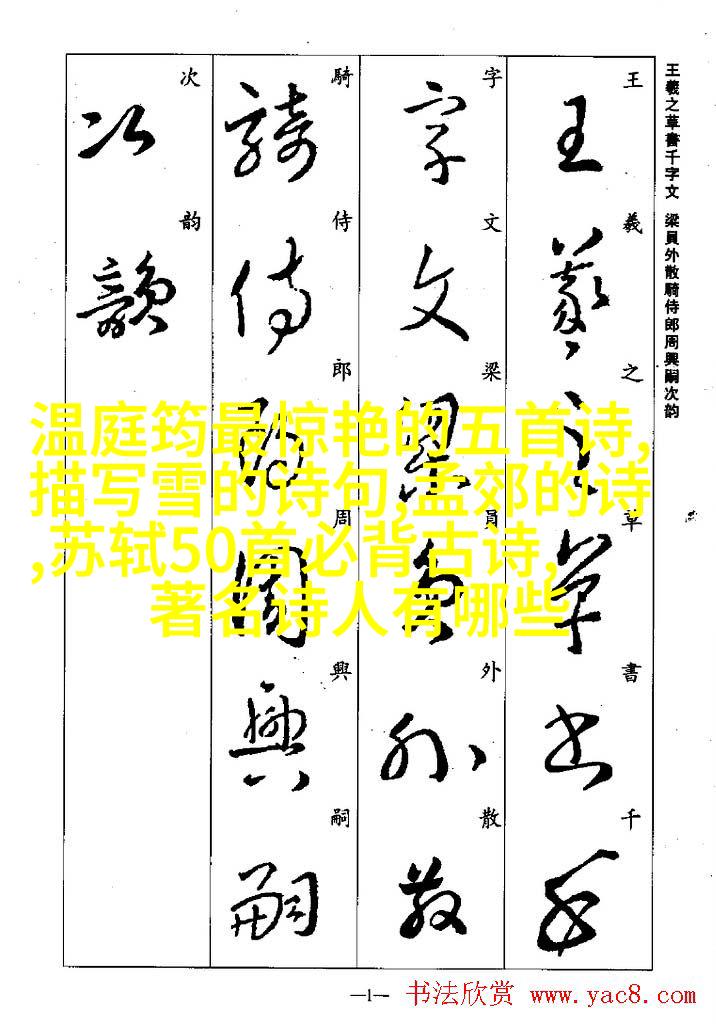 王羲之草書千字文 梁員外散騎侍郎周興嗣次韵
王羲之草書千
王羲之草書千
字文梁員外散
字文梁員外散
騎侍郎周興嗣
騎侍郎周興嗣
次韵
次韻
温庭筠最惊艳的五首诗,
描写雪的诗句,孟郊的诗
,苏轼50首必背古诗,
著名诗人有哪些
—1—
书法欣赏 www.yac8.com